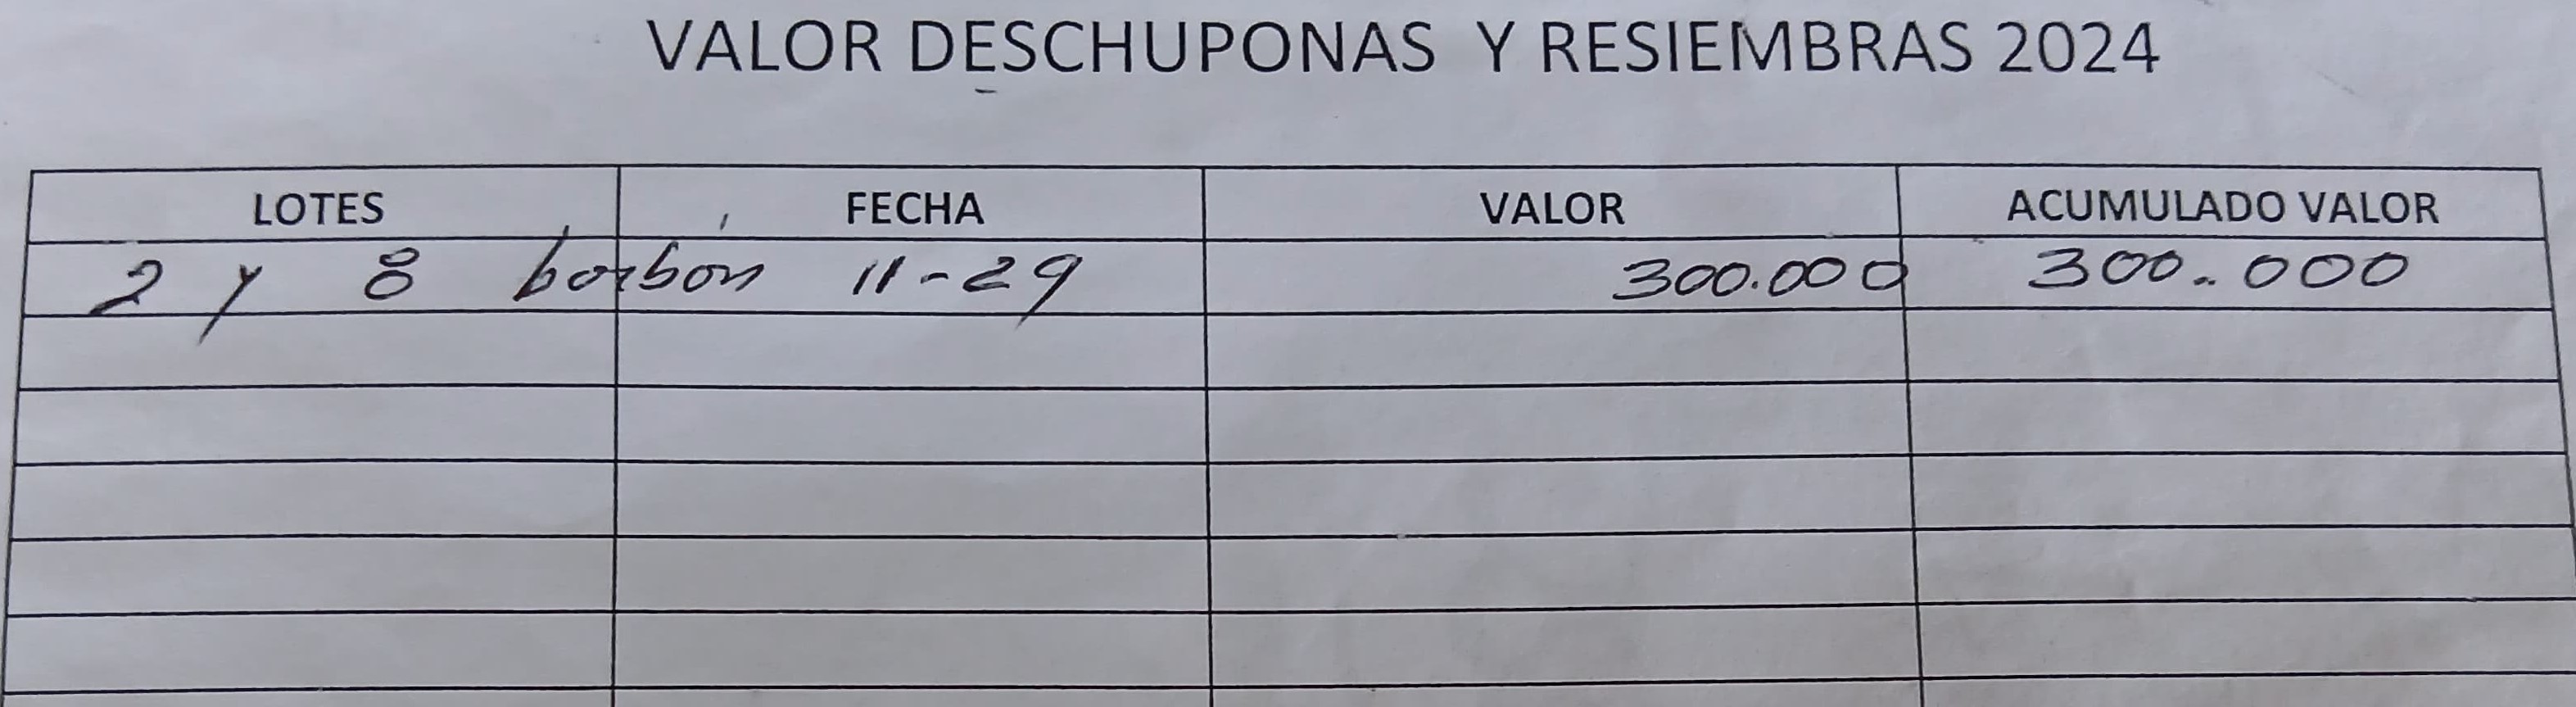 VALOR DESCHUPONAS Y RESIEMBRAS 2024
LOTES FECHA VALOR ACUMULADO VALOR
2 y 8 borbón 11-29 300.000 300.000